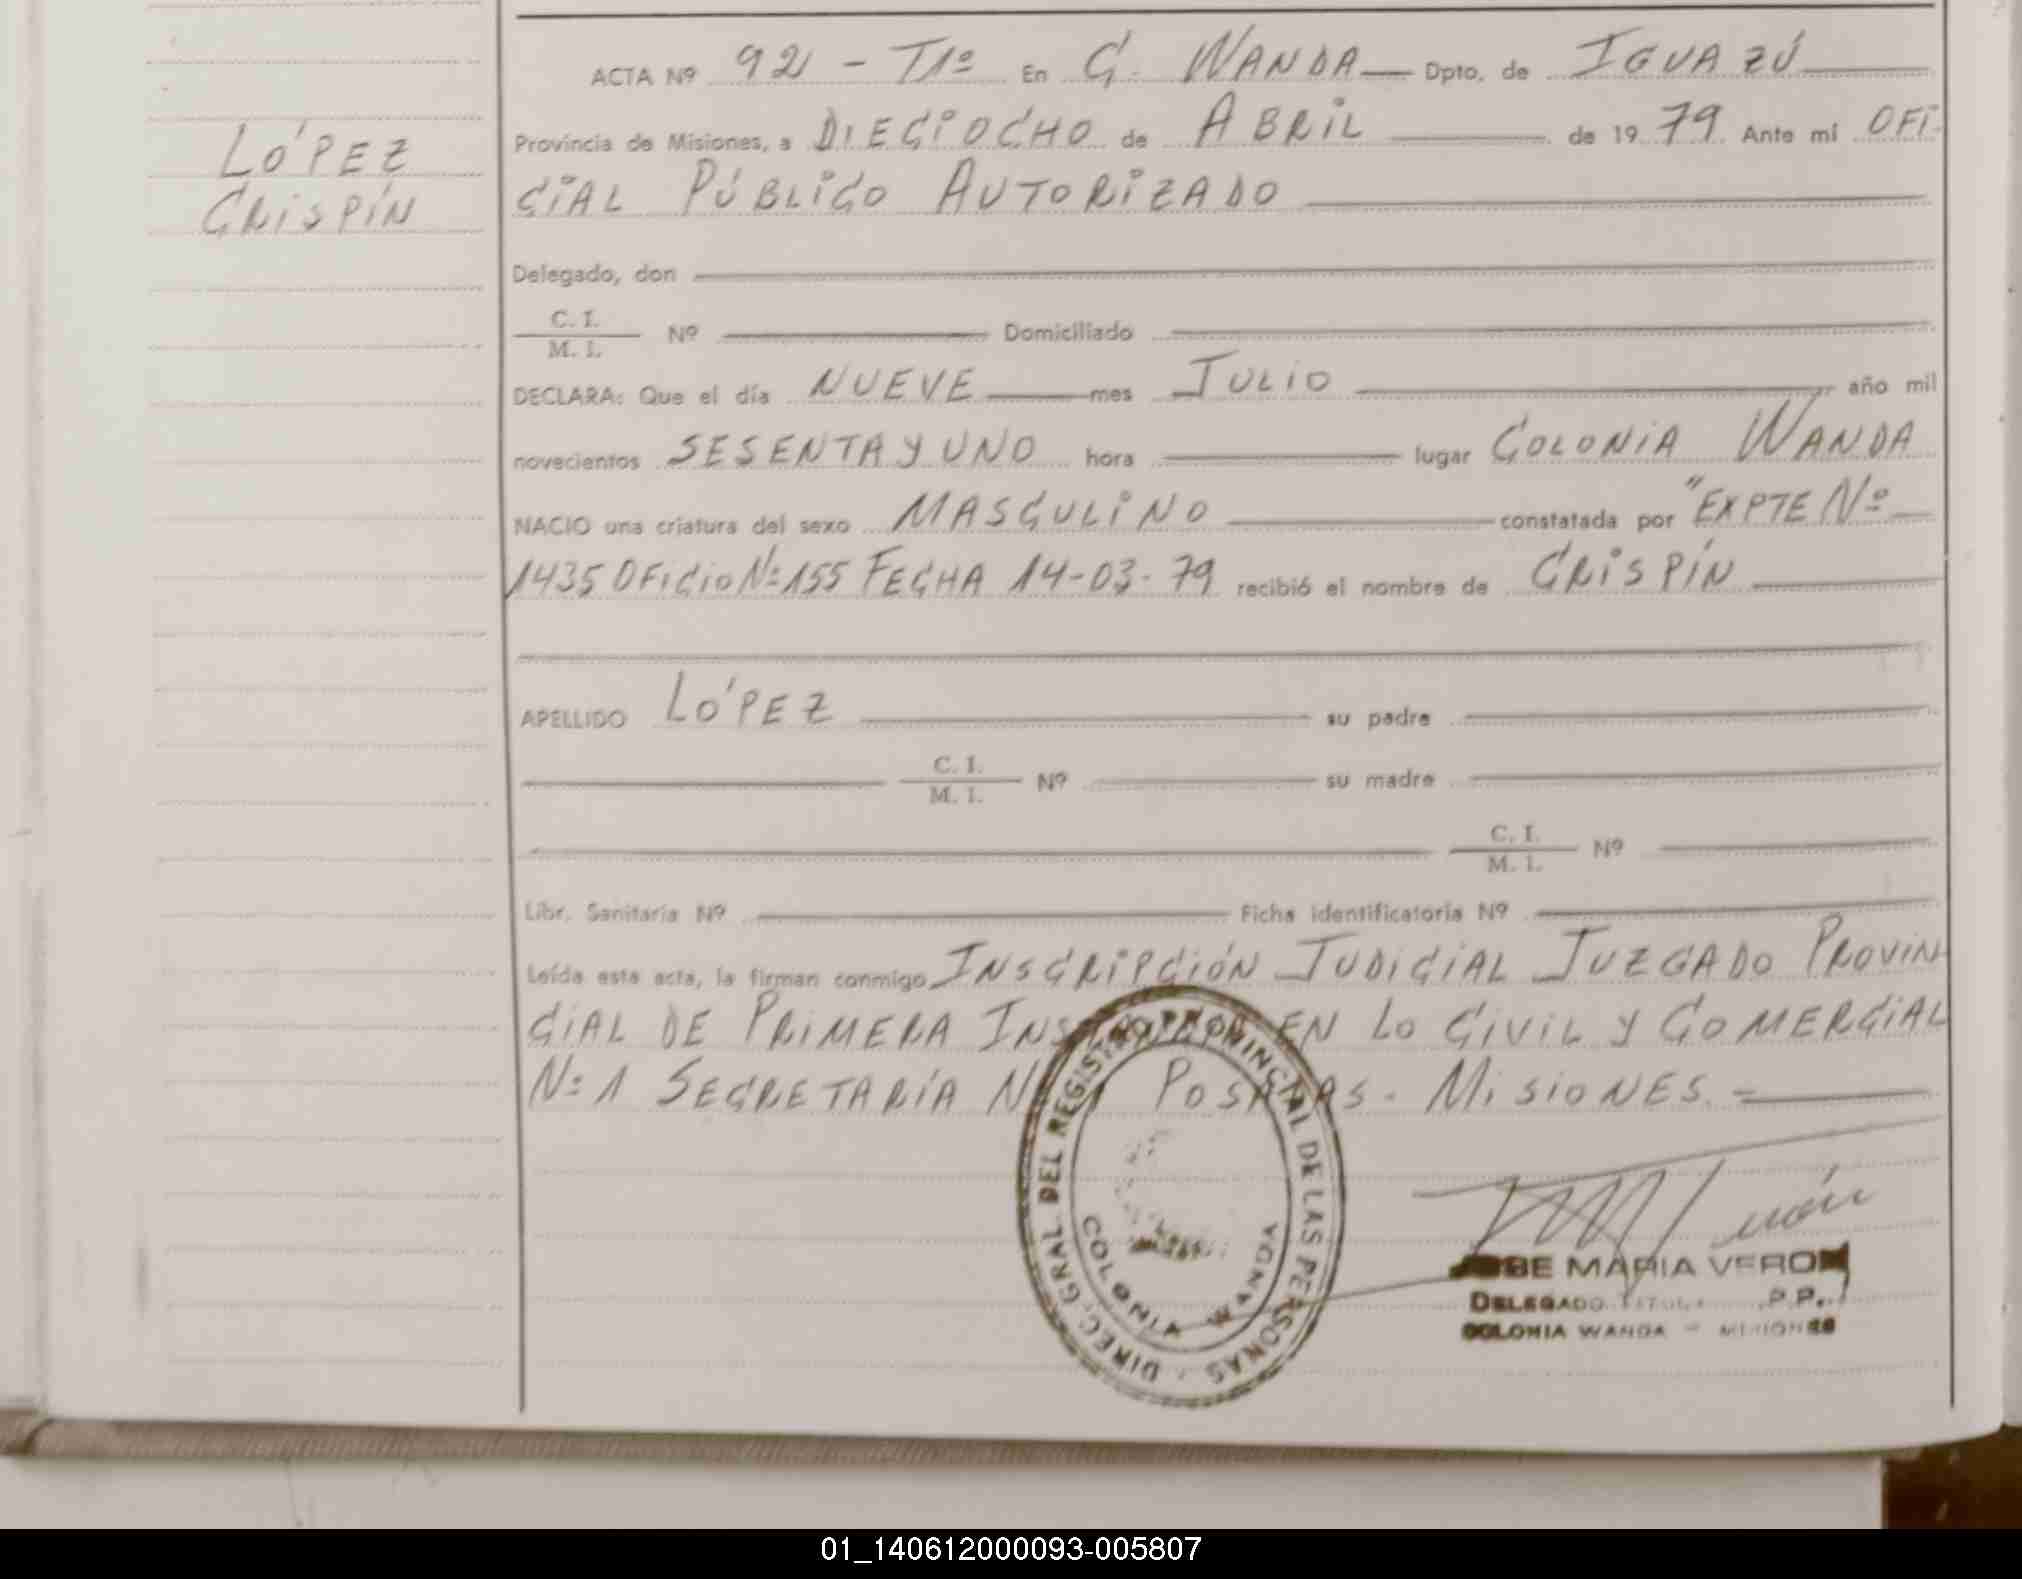 ACTA Nº 92 - T1º En C. WANDA Dpto. de IGUAZÚ
LÓPEZ
CRISPÍN
Provincia de Misiones, a DIECIOCHO de ABRIL de 1979 Ante mí OFI-
CIAL PÚBLICO AUTORIZADO
Delegado, don
C. I.
M. I.
Nº Domiciliado
DECLARA: Que el día NUEVE mes JULIO año mil
novecientos SESENTA Y UNO hora lugar COLONIA WANDA
NACIO una criatura del sexo MASCULINO constatada por "EXPTE Nº
1435 OFICIO Nº 155 FECHA 14-03-79 recibió el nombre de CRISPÍN
APELLIDO LÓPEZ su padre
C. I.
M. I.
Nº su madre
C. I.
M. I.
Nº
Libr. Sanitaria Nº Ficha identificatoria Nº
Leída esta acta, la firman conmigo INSCRIPCIÓN JUDICIAL JUZGADO PROVIN
CIAL DE PRIMERA EN LO CIVIL Y COMERCIAL
Nº 1 SECRETARÍA POSADAS - MISIONES =
DIREC. GRAL DEL REGISTRO PROVINCIAL DE LAS PERSONAS
COLONIA WANDA
JOSE MARIA VERON
DELEGADO TITULAR P.P.
COLONIA WANDA - MISIONES
01_140612000093-005807